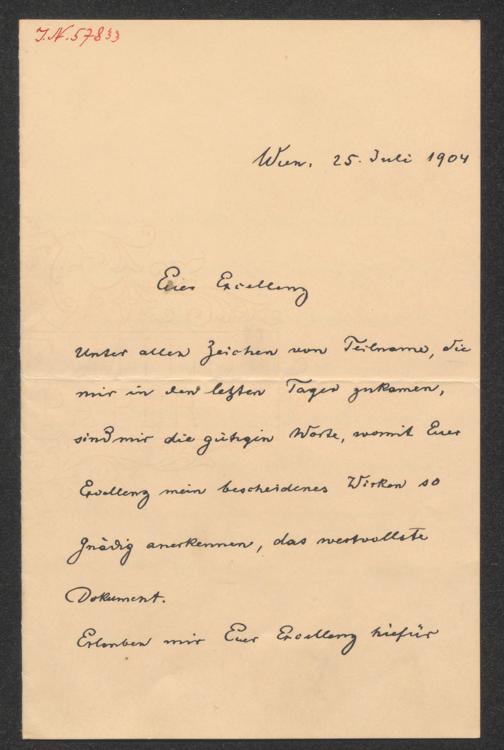 J.N. 57833
Wien, 25. Juli 1904
Euer Excellenz
Unter allen Zeichen von Teilname, die
mir in den letzten Tagen zukamen,
sind mir die gütigen Worte, womit Euer
Excellenz mein bescheidenes Wirken so
gnädig anerkennen, das wertvollste
Dokument.
Erlauben mir Euer Excellenz hiefür